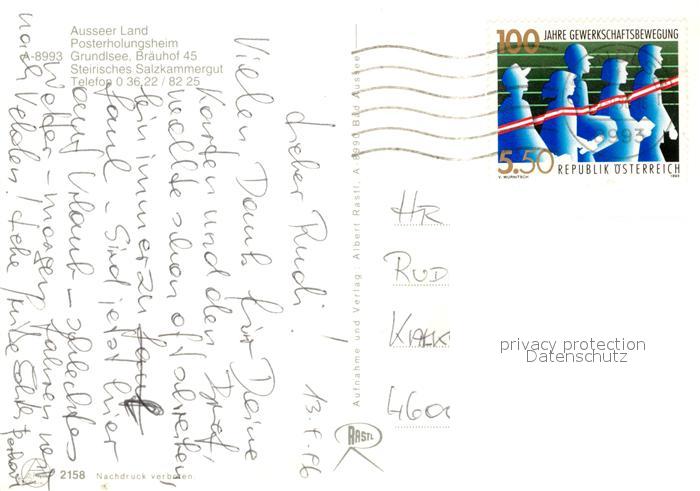 Ausseer Land
Posterholungsheim
A-8993 Grundlsee, Bräuhof 45
Steirisches Salzkammergut
Telefon 0 36 22 / 82 25
100 JAHRE GEWERKSCHAFTSBEWEGUNG
8993
5.50 REPUBLIK ÖSTERREICH
V. WURNITSCH 1993
Aufnahme und Verlag: Albert Rastl, A 8990 Bad Aussee
13.
Lieber Rudi!
Vielen Dank für Deine
Karten und den Brief,
wollte schon oft schreiben,
bin immer zu faul
faul - Sind jetzt hier
auf Urlaub - schlechtes
Wetter - morgen fahren wir
nach Velden! Liebe Grüße
HR
RUD
KALK
460
privacy protection
Datenschutz
RASTL
2158 Nachdruck verboten